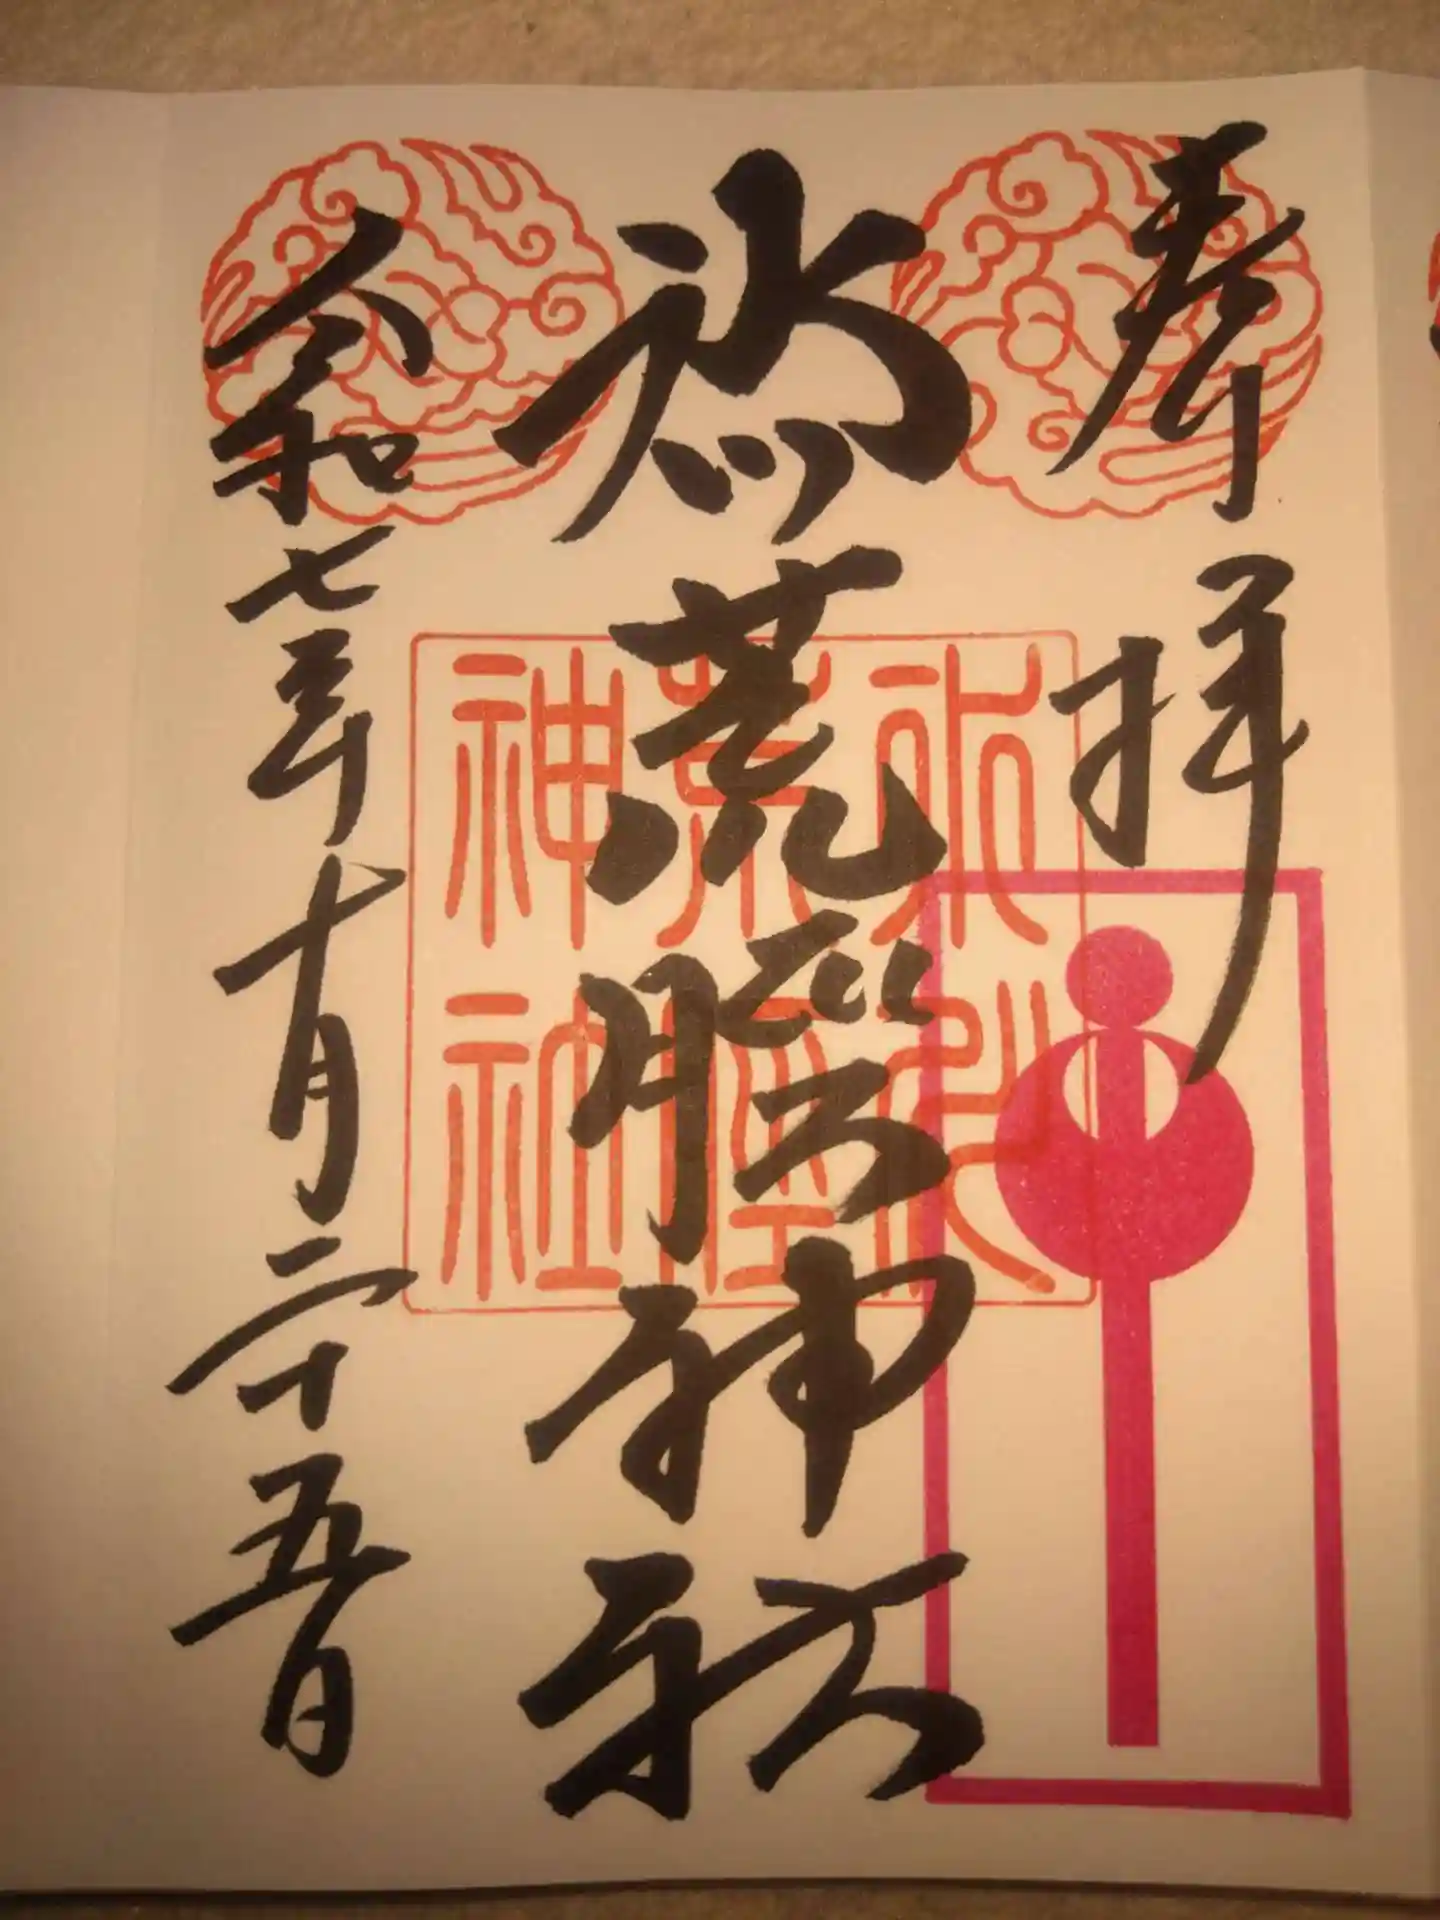 奉拝
氷川荒脛神社
令和七年十月二十五日
氷川
荒脛
神社